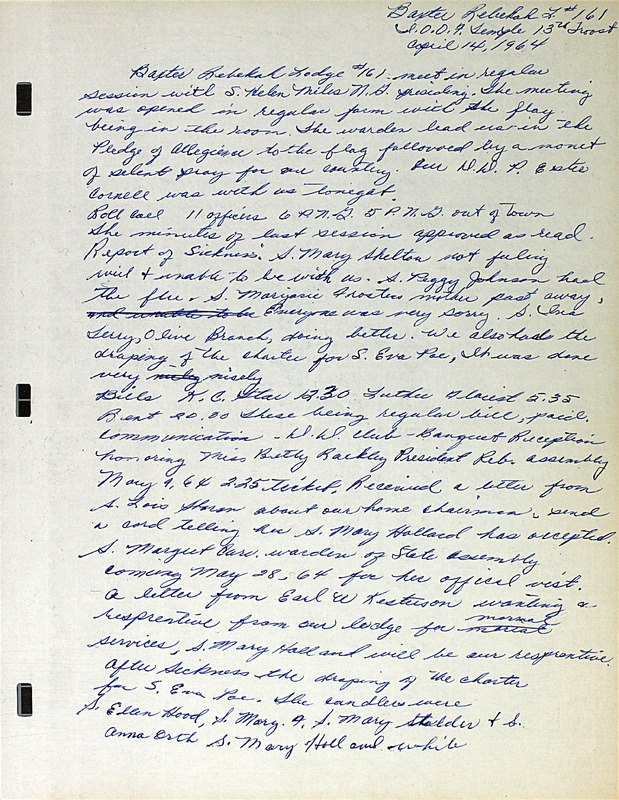 Baxter Rebekah L. #161
I.O.O.F. Temple 13th Troost
April 14, 1964
Baxter Rebekah Lodge #161 meet in regular
session with S. Helen Miles N.G. presiding. The meeting
was opened in regular form with the flag
being in the room. The warden lead us in the
Pledge of Allegience to the flag followed by a monet
of silent pray for our country. Our D.D. P. Estie
Cornell was with us tonegat.
Roll Call 11 officers 6 P.N.G. 5 P.N.G. out of town
The minutes of last session approved as read.
Report of Sickness: S. Mary Shelton not feling
will & unable to be with us. S. Peggy Johnson had
the flu. S. Marjorie Frosties mother past away,
and unable to be Everyone was very sorry. S. Ina
Terry, Olive Branch, doing better. We also hads the
draping of the charter for S. Eva Poe, It was done
very nicely nisely
Bills K.C. Star 12.30 Luther Florist 5.35
Rent 20.00 These being regular bill, paid.
Communication - D.D. Club - Banquet Reception
honoring Miss Betty Barkley President Reb. Assembly
May 9, 64 2.25 ticket. Received a letter from
S. Lois Sharon about our home chairman, send
a card telling her S. Mary Holland has accepted.
S. Margret warden of State Assembly
coming May 28, 64 for her official vist.
A letter from Earl W Kesterson wanting a
resprentive from our lodge for mormal morial
services, S. Mary Holland will be our resprentive.
After Sickness the draping of the charter
for S. Eva Poe. The candlers were
S. Ellen Hood, S. Mary. A, S. Mary Shelder & S.
Anna Orth S. Mary Holland. while